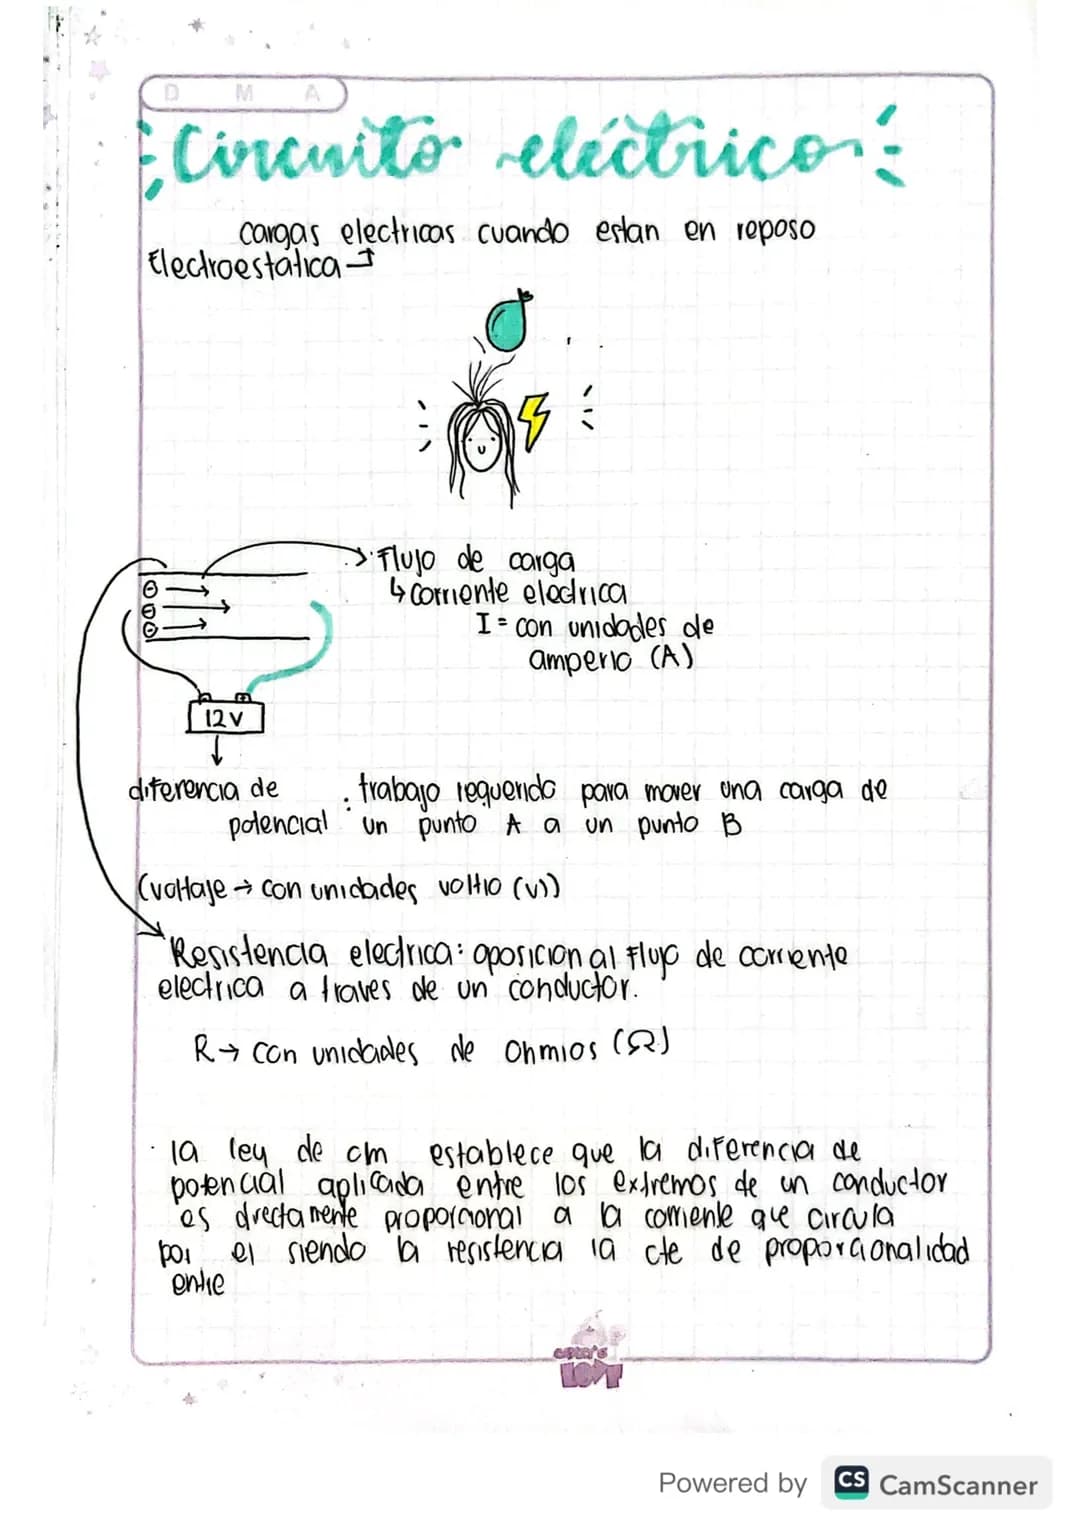 D M A
Circuito eléctrico
cargas electricas cuando estan en reposo
Electroestatica
Flujo de carga
↳ corriente electrica
I = con unidades de
amperio (A)
12V
diferencia de
potencial
: trabajo requerido para mover una carga de
un punto A a un punto B
(voltaje → con unidades voltio (v))
Resistencia electrica: oposicion al flujo de corriente
electrica a traves de un conductor.
R → con unidades de Ohmios (Ω)
· la ley de om establece que la diferencia de
potencial aplicada entre los extremos de un conductor
es directamente proporcional a la corriente que circula
por el siendo la resistencia la cte de proporcionalidad
entre
LOVE
Powered by CS CamScanner